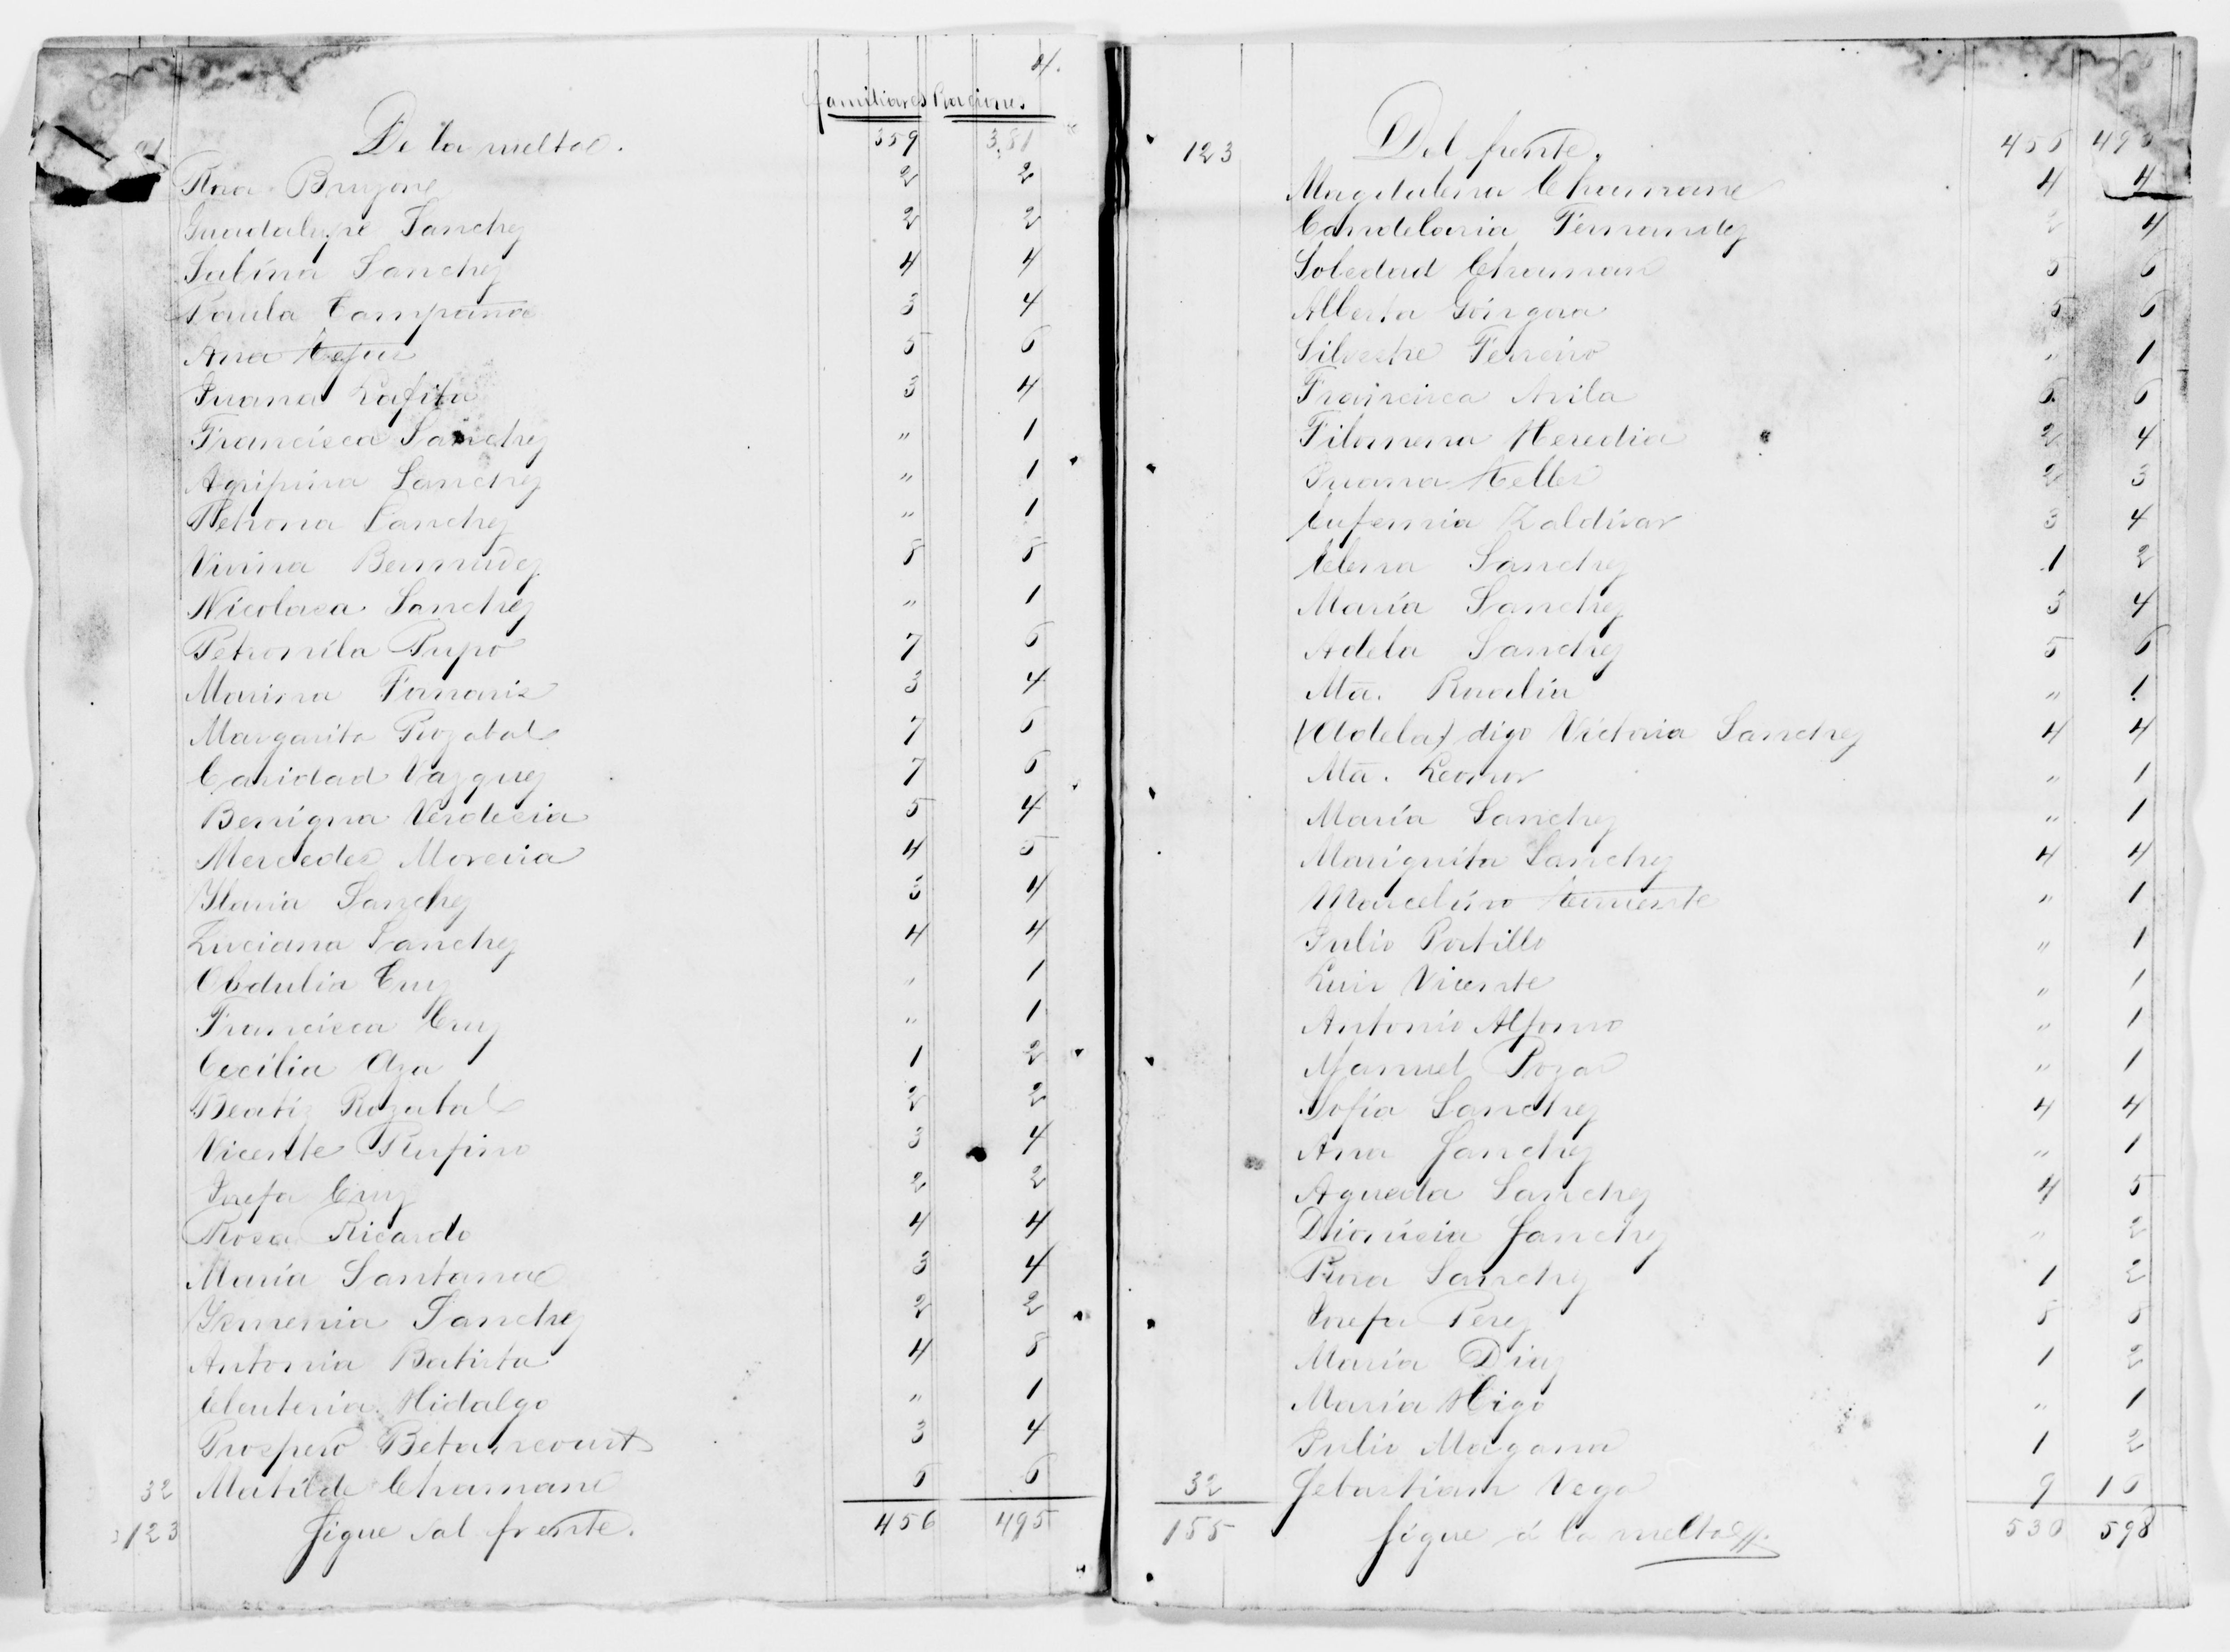 4.
familiares Raciones
De la vuelta. 359 381
Rosa Bruzone 2 2
Guadalupe Sanchez 2 2
Sabina Sanchez 4 4
Paula Campaña 3 4
Ana 5 6
Juana Lafita 3 4
Francisca Sanchez " 1
Agripina Sanchez " 1
Petrona Sanchez " 1
Vivina Bermudez 8 8
Nicolasa Sanchez " 1
Petronila Pupo 7 6
Mariana Fornaris 3 4
Margarita Rozabal 7 6
Caridad Vazquez 7 6
Benigna Verdecia 5 4
Mercedes Moreira 4 5
Ylaria Sanchez 3 4
Luciana Sanchez 4 4
Obdulia Cruz " 1
Francisca Cruz " 1
Cecilia Aza 1 2
Beatriz Rozabal 2 2
Vicente Rufino 3 4
Josefa Cruz 2 2
Rosa Ricardo 4 4
María Santana 3 4
Ysmenia Sanchez 2 2
Antonia Batista 4 8
Eleuteria Hidalgo " 1
Prospero Betancourt 3 4
32 Matilde Chamane 6 6
123 Sigue al frente. 456 495
123 Del frente. 456 495
Magdalena Chamane 4 4
Candelaria Fernandez 2 4
Soledad Chaman 5 6
Alberta Góngora 5 6
Silvestre Ferreiro " 1
Francisca Avila 6 6
Filomena Heredia 2 4
Juana Telles 2 3
Eufemia Zaldívar 3 4
Elena Sanchez 1 2
María Sanchez 3 4
Adela Sanchez 5 6
Mª. Rosalia " 1
(Adela) digo Victoria Sanchez 4 4
Mª. Leonor " 1
María Sanchez " 1
Mariquita Sanchez 4 4
Marcelino " 1
Julio Portillo " 1
Luis Vicente " 1
Antonio Alfonso " 1
Manuel Poza " 1
Sofia Sanchez 4 4
Ana Sanchez " 1
Agueda Sanchez 4 5
Dionisia Sanchez " 2
Rosa Sanchez 1 2
Josefa Perez
María Diaz 1 2
María Higo " 1
Julio Magana 1 2
32 Sebastian Vega 9 10
155 Sigue á la vuelta 530 598